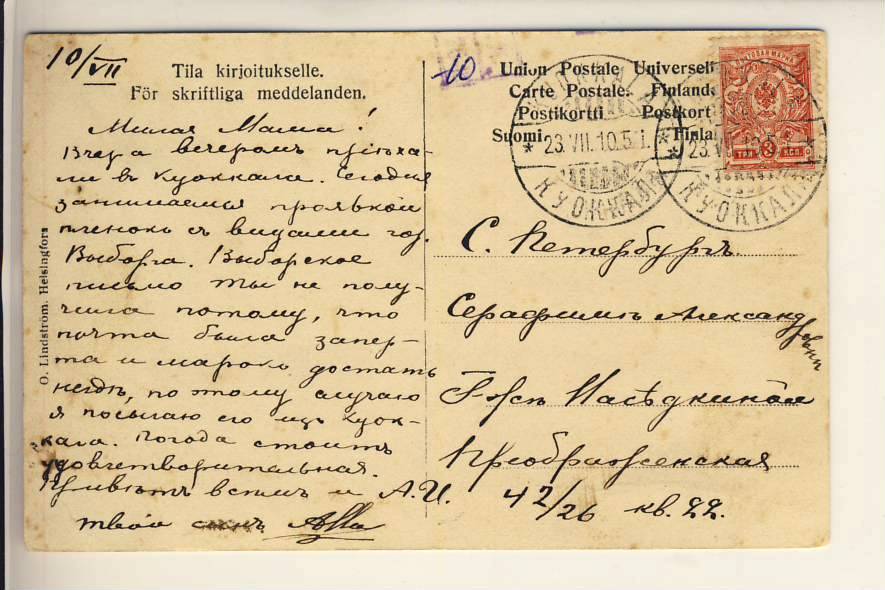 10/VII
Tila kirjoitukselle.
För skriftliga meddelanden.
Милая Мама!
Вчера вечеромъ пріѣха-
ли въ Куоккала. Сегодня
занимаемся проявкой
пленокъ съ видами гор.
Выборга. Выборгское
письмо ты не полу-
чила потому, что
почта была запер-
та и марокъ достать
негдѣ, по этому случаю
я посылаю его изъ Куок-
кала. Погода стоитъ
удовлетворительная.
Привѣтъ всѣмъ и А.И.
твой сынъ
O. Lindström. Helsingfors
10
Union Postale Universell
Carte Postale. Finland
Postikortti Postkort
Suomi. Finlan
* 23.VII.10.5
КУОККАЛА
23.V
КУОККАЛА
ТРИ 3 КОП.
С. Петербургъ.
Серафимѣ Александровнѣ
Г-жѣ Насѣдкиной
Преображенская
42/26 кв. 22.